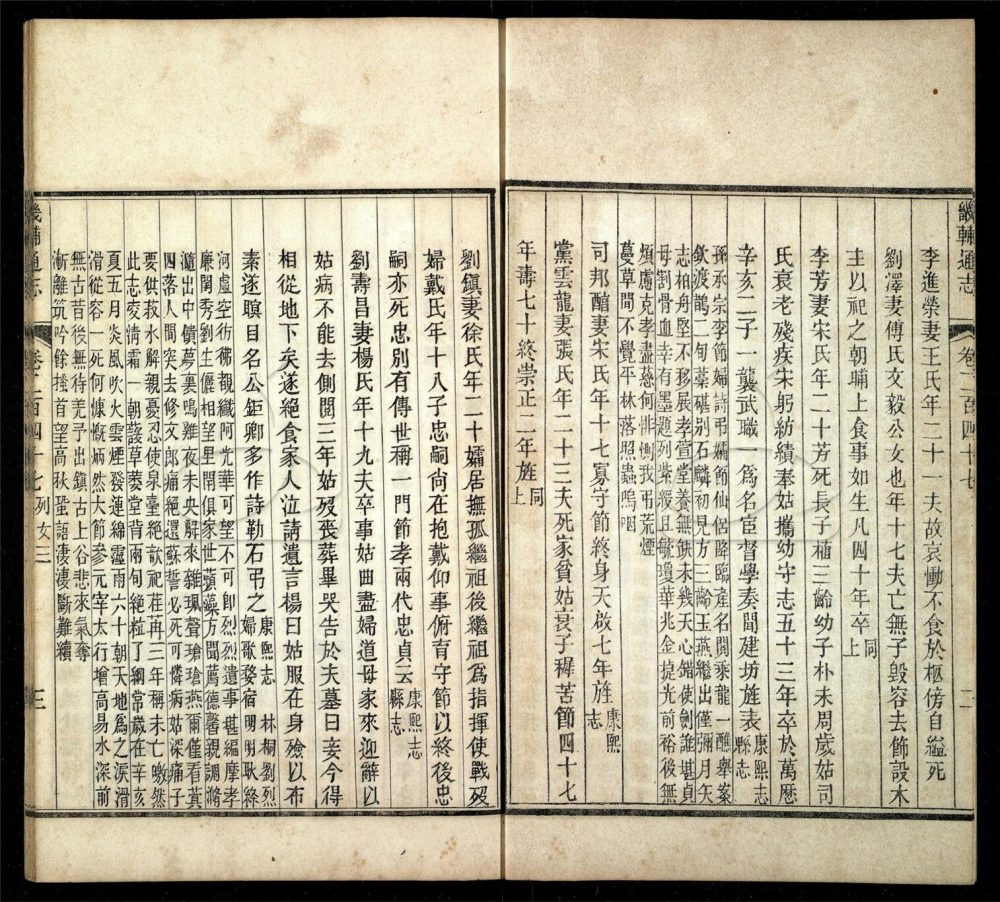 畿輔通志 卷二百四十七 二
李進榮妻王氏年二十一夫故哀慟不食於柩傍自縊死
劉澤妻傅氏文毅公女也年十七夫亡無子毀容去飾設木
主以祀之朝晡上食事如生凡四十年卒同上
李芳妻宋氏年二十芳死長子植三齡幼子朴未周歲姑司
氏衰老殘疾宋躬紡績奉姑攜幼守志五十三年卒於萬曆
辛亥二子一襲武職一爲名臣督學奏聞建坊旌表康熙志
縣志
孫承宗李節婦詩弔孀節仙侶降臨産名閥乘龍一醮舉案
欽渡鵲二旬藁砧別石麟初見方三齡玉燕繼出僅彌月矢
志柏舟堅不移展孝萱堂養無缺未幾天心錯使劍誰甚貞
母割骨血幸有墨題列紫綬且毓瓊華兆金掟光前裕後無
煩慮克孝盡慈何徘惻我弔荒煙
蔓草間不覺平林落照蟲嗚咽
司邦醋妻宋氏年十七寡守節終身天啟七年旌康熙
志
黨雲龍妻張氏年二十三夫死家貧姑衰子穉苦節四十七
年壽七十終崇正二年旌同上
劉鎮妻徐氏年二十孀居撫孤繼祖後繼祖爲指揮使戰歿
婦戴氏年十八子忠嗣尙在抱戴仰事俯育守節以終後忠
嗣亦死忠別有傳世稱一門節孝兩代忠貞云康熙志
縣志
劉壽昌妻楊氏年十九夫卒事姑曲盡婦道母家來迎辭以
姑病不能去側閱三年姑歿喪葬畢哭告於夫墓曰妾今得
相從地下矣遂絕食家人泣請遺言楊曰姑服在身殮以布
素遂暝目名公鉅卿多作詩勒石弔之康熙志 林桐劉烈
婦歌婺宿明明歌絳
河虛空彷彿觀纖阿光華可望不可即烈烈遺事甚編摩孝
廉閨秀劉生儷相望里閈俱家世蘋藻方聞薦德馨親調滫
瀡出中饋夢裏鳴雞夜未央解來雜珮聲瑲瑲燕爾僅看蓂
四落人間突去修文郎痛絕還蘇誓必死可憐病姑深痛子
要供菽水解親憂忍使泉臺絕歆祀荏苒三年稱未亡皦然
此志凌淸霜一朝護草萎堂背兩旬絕粒了綱常歲在辛亥
夏五月炎風吹火雲煙發連綿靈雨六十朝天地爲之淚滑
滑從容一死何慷慨炳然大節參元宰太行增高易水深前
無古昔後無待羌予出鎮古上谷悲來氣奪
漸離筑吟餘搔首望高秋蛩語淒淒斷難續
畿輔通志 卷二百四十七 列女三 三